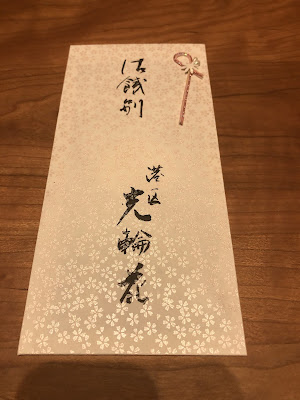 御餞別
港区
光輪花